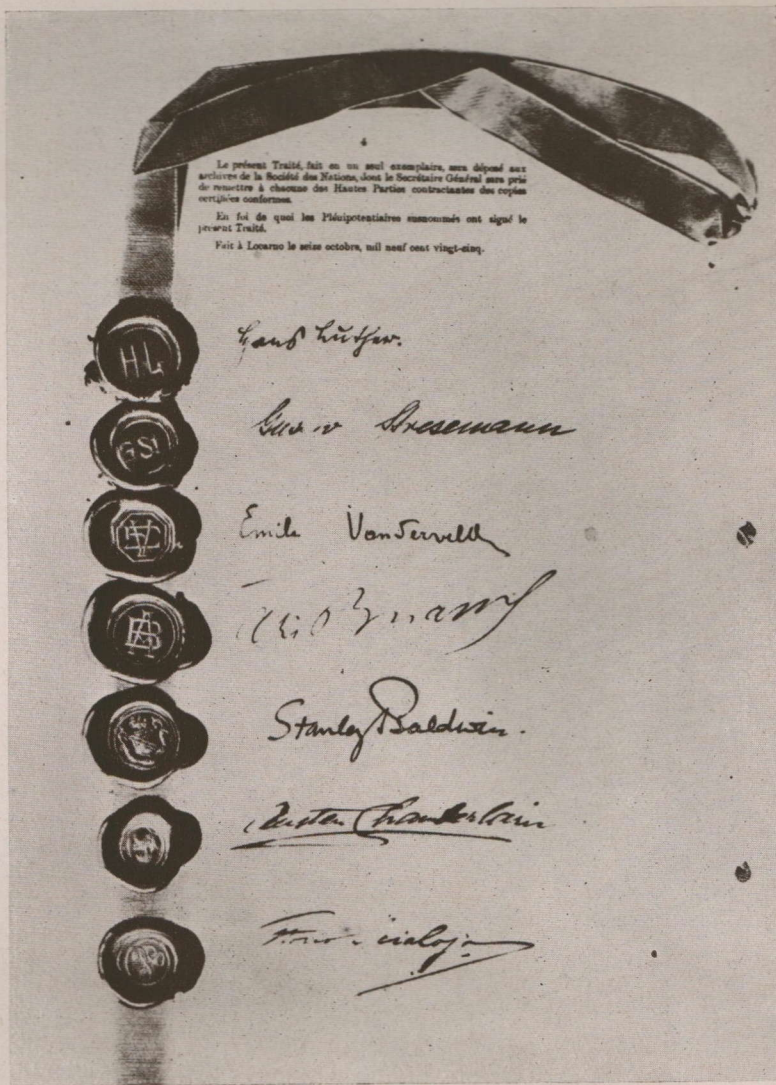 4
Le présent Traité, fait en un seul exemplaire, sera déposé aux
archives de la Société des Nations, dont le Secrétaire Général sera prié
de remettre à chacune des Hautes Parties contractantes des copies
certifiées conformes.
En foi de quoi les Plénipotentiaires susnommés ont signé le
présent Traité.
Fait à Locarno le seize octobre, mil neuf cent vingt-cinq.
HL
Hans Luther.
GSt
Stresemann
Emile Vandervelde
AB
Briand
Stanley Baldwin.
Austen Chamberlain